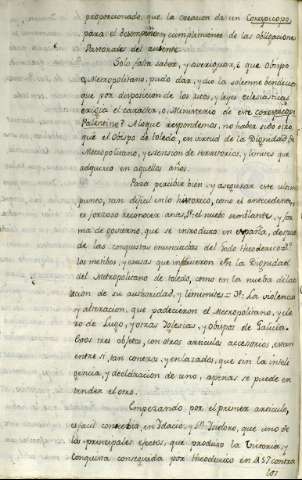 proporcionado, que la creacion de un Corepiscopo,
para el desempeño, y cumplimiento de las obligaciones
Pastorales del ausente.
Solo falta saber, y averiguar, è que Obispo
ò Metropolitano, pudo dar, y dio la solemne bendicion
que por disposicion de los ritos, y leyes eclesiasticas
exigia el caracter, ò Ministerio de este corepiscopo
Palentino? A lo que respondemos, no haber sido otro
que el Obispo de toledo, en virtud de la Dignidad de
Metropolitano, y extension de territorios, y limites que
adquirio en aquellos años.
Para percibir bien, y asegurar este ultimo
punto, tan dificil en lo historico, como el antecedente,
es forzoso reconocer antes, 1º: el nuebo semblante, y for
ma de govierno, que se introdujo en españa, despues
de las conquistas enunciadas del Godo Theodorico: 2º:
los motibos, y causas que influieron en la Dignidad
del Metropolitano de toledo, como en la nueba dila
tacion de su autoridad, y limimites = 3º: La violencia
y alteracion, que padecieron el Metropolitano, y cle
ro de Lugo, y otras Iglesias, y obispos de Galicia.
Estos tres objetos, con otros articulos accesorios, estan
entre si, tan conexos, y enlazados, que sin la inteli
gencia, y declaracion de uno, apenas se puede en
tender el otro.
Empezando por el primer articulo,
es facil conocer, en Idacio, y Sn. Isidoro, que uno de
los principales efectos, que produjo la victoria, y
conquista conseguida por Theodorico en 457 contra
los